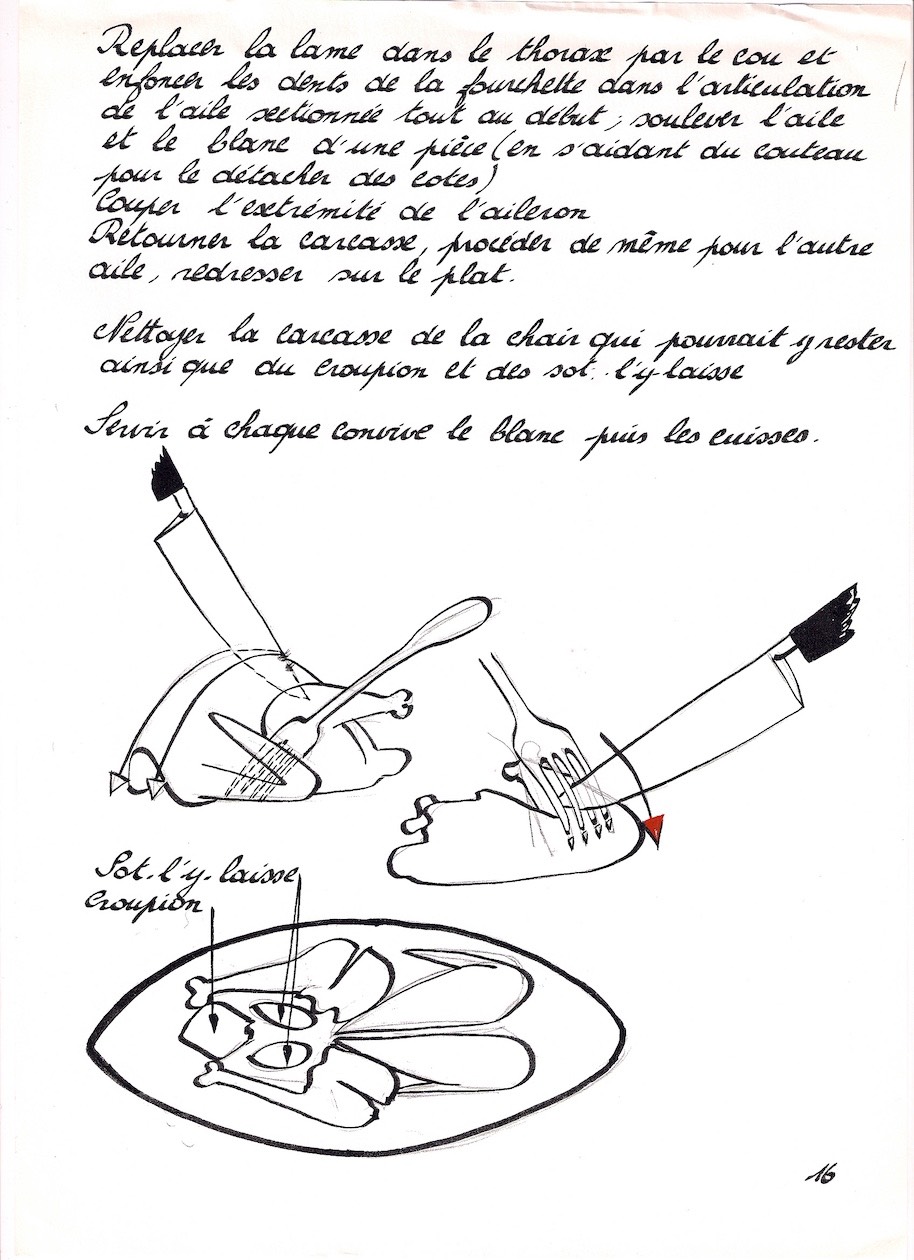 Replacer la lame dans le thorax par le cou et
enfoncer les dents de la fourchette dans l'articulation
de l'aile sectionnée tout au début ; soulever l'aile
et le blanc d'une pièce (en s'aidant du couteau
pour le détacher des cotes)
Couper l'extrémité de l'aileron
Retourner la carcasse, procéder de même pour l'autre
aile, redresser sur le plat.
Nettoyer la carcasse de la chair qui pourrait y rester
ainsi que du croupion et des sot. l'y-laisse
Servir à chaque convive le blanc puis les cuisses.
Sot-l'y-laisse
Croupion
16